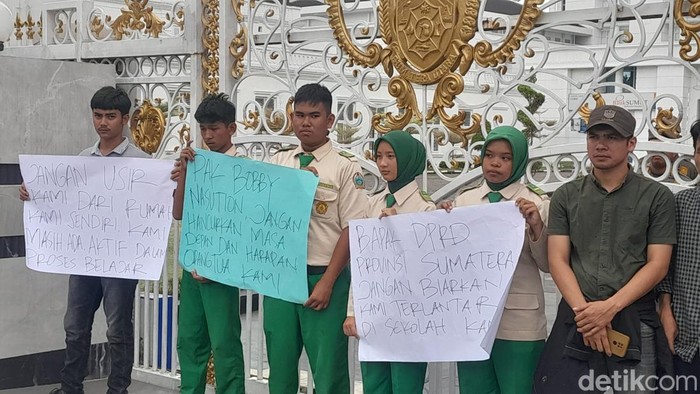 JANGAN USIR
KAMI DARI RUMAH
KAMI SENDIRI. KAMI
MASIH ADA AKTIF DALAM
PROSES BELAJAR
PAK BOBBY
NASUTION JANGAN
HANCURKAN MASA
DEPAN DAN HARAPAN
ORANGTUA KAMI
BAPAK DPRD
PROVINSI SUMATERA
JANGAN BIARKAN
KAMI TERLANTAR
DI SEKOLAH KAMI
detikcom